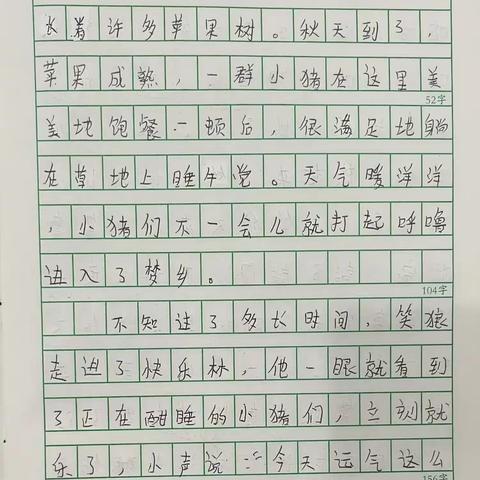 长着许多苹果树。秋天到了，
苹果成熟，一群小猪在这里美
52字
美地饱餐一顿后，很满足地躺
在草地上睡午觉。天气暖洋洋
，小猪们不一会儿就打起呼噜
进入了梦乡。
104字
不知过了多长时间，笑狼
走进了快乐林，他一眼就看到
了正在酣睡的小猪们，立刻就
乐了，小声说：“今天运气这么
156字